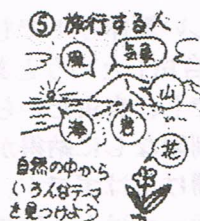 ⑤ 旅行する人
風
気象
山
海
岩
花
自然の中から
いろんなテーマ
を見つけよう